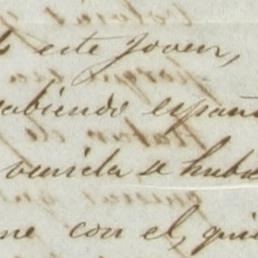 este joven,
sabiendo españ
venida se hub
me con el, qui